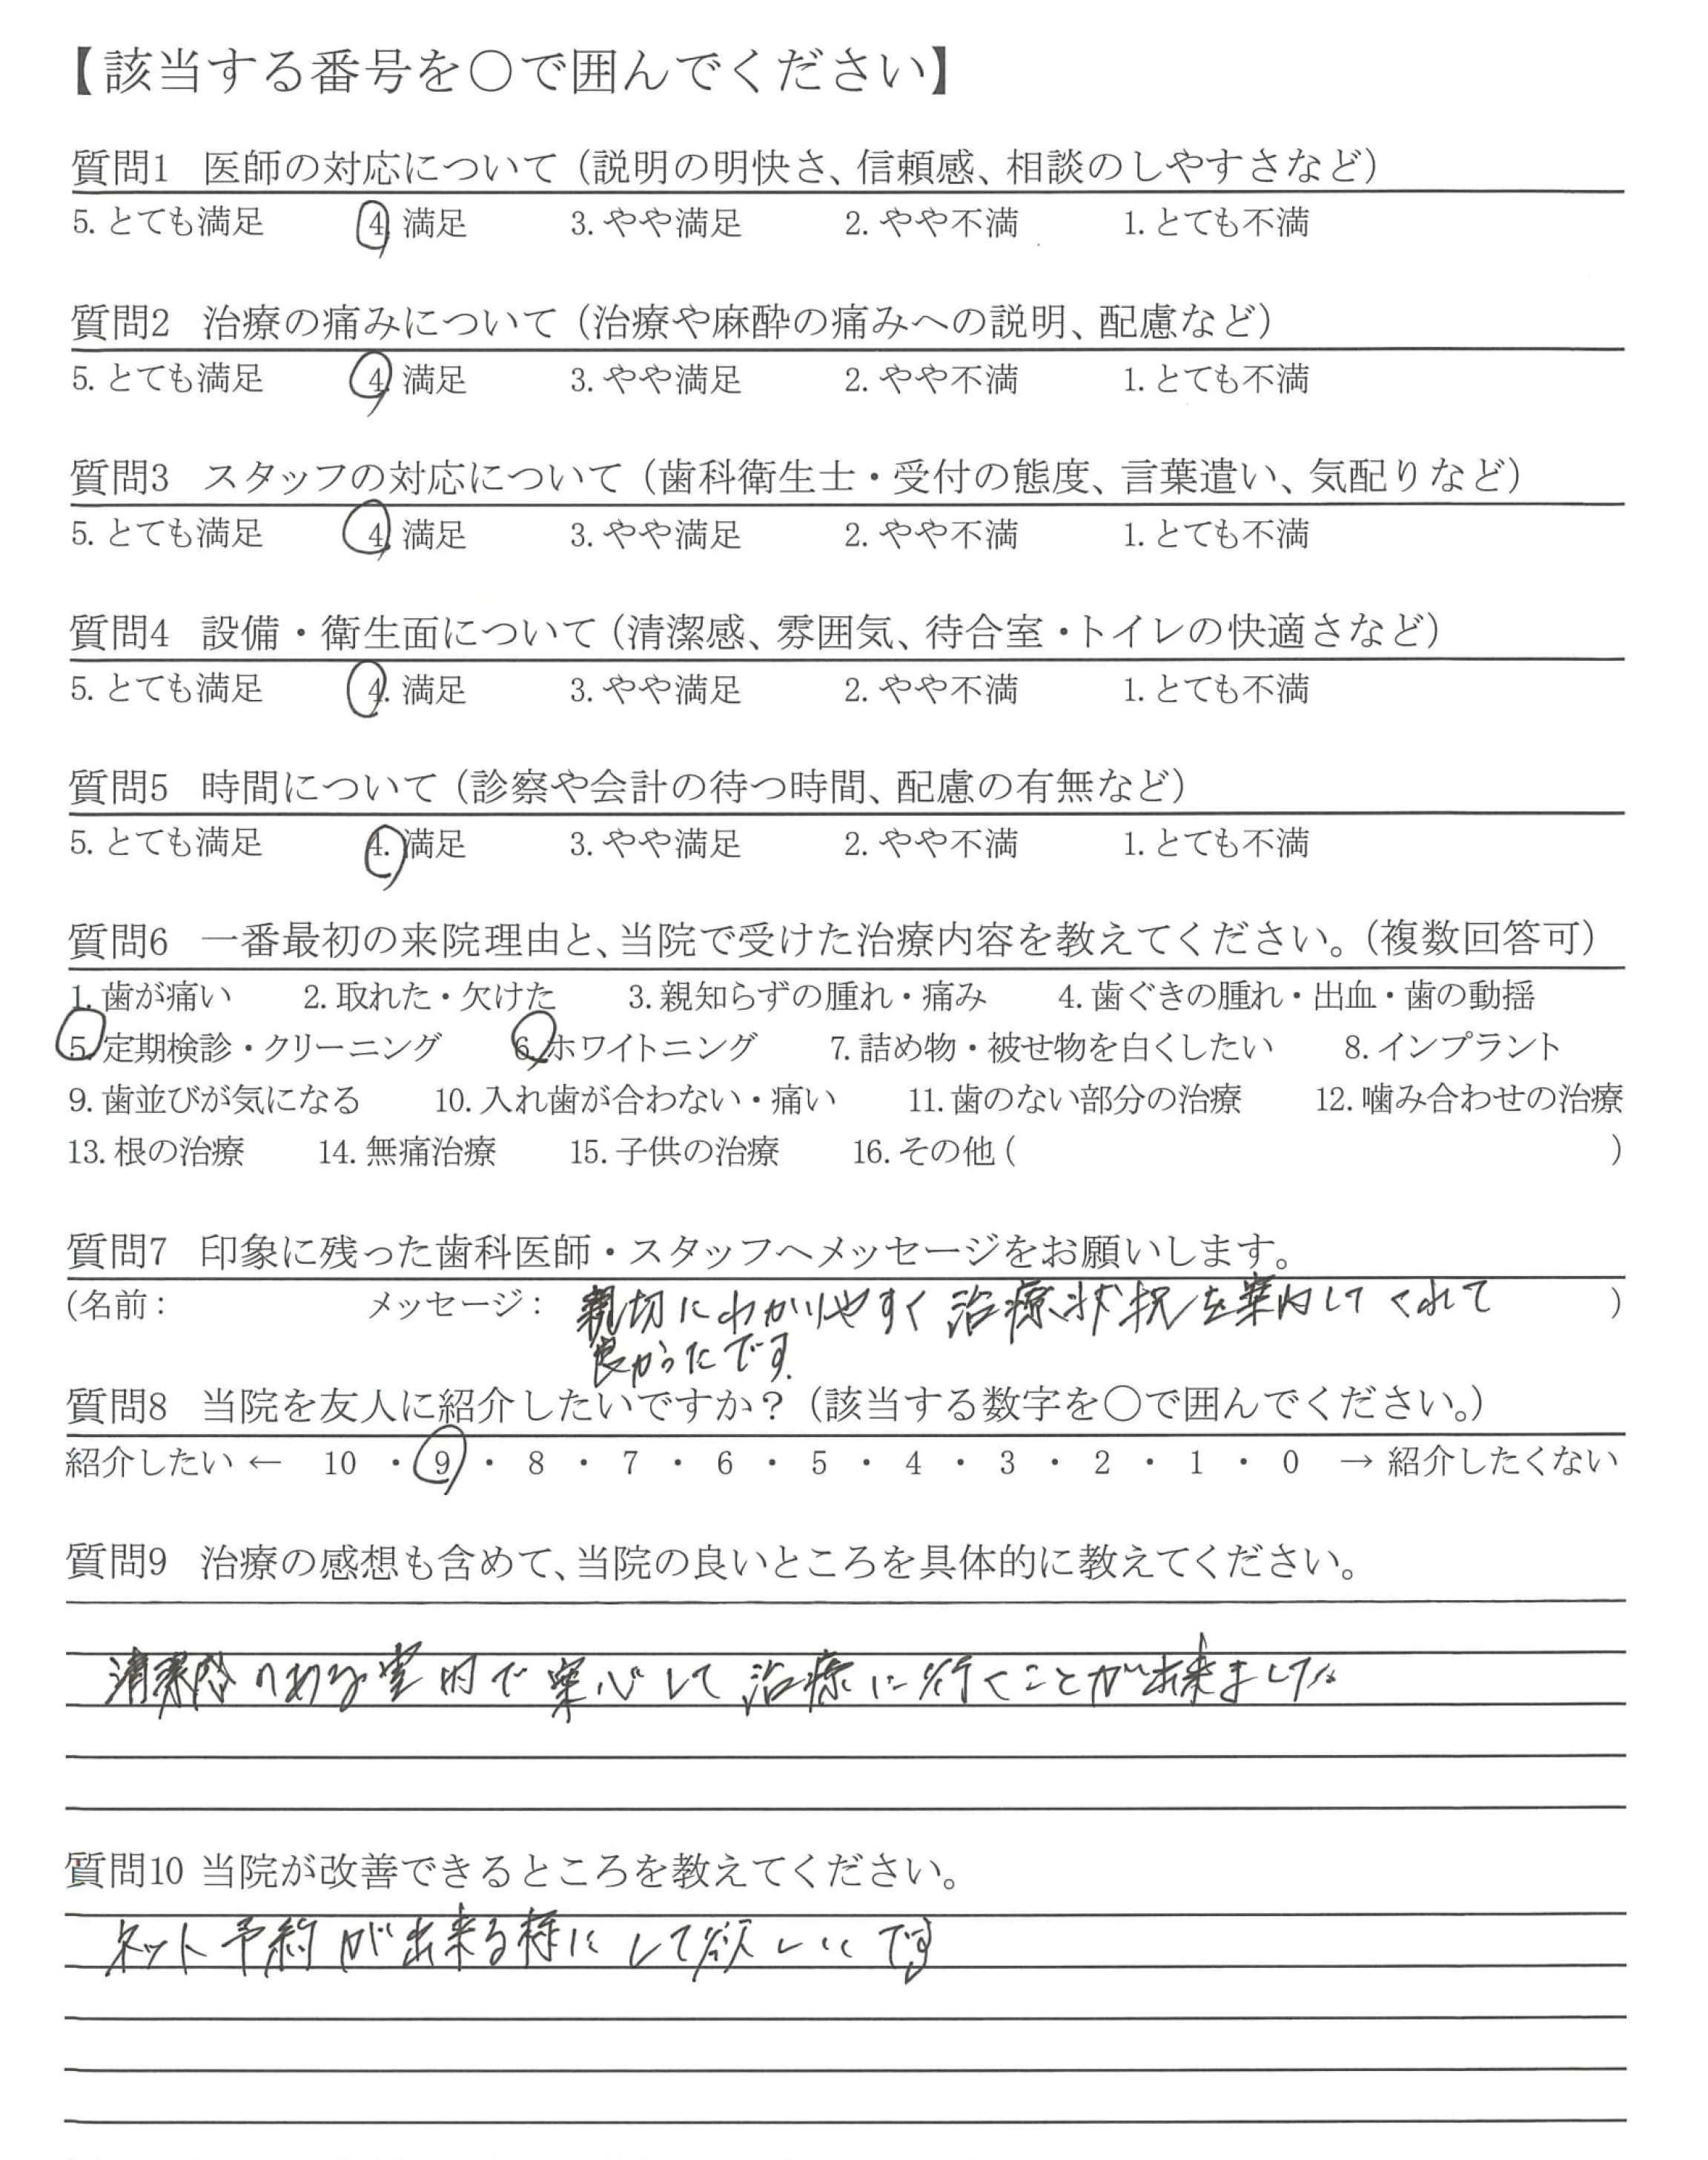 【該当する番号を○で囲んでください】
質問1 医師の対応について（説明の明快さ、信頼感、相談のしやすさなど）
5. とても満足 4. 満足 3. やや満足 2. やや不満 1. とても不満
質問2 治療の痛みについて（治療や麻酔の痛みへの説明、配慮など）
5. とても満足 4. 満足 3. やや満足 2. やや不満 1. とても不満
質問3 スタッフの対応について（歯科衛生士・受付の態度、言葉遣い、気配りなど）
5. とても満足 4. 満足 3. やや満足 2. やや不満 1. とても不満
質問4 設備・衛生面について（清潔感、雰囲気、待合室・トイレの快適さなど）
5. とても満足 4. 満足 3. やや満足 2. やや不満 1. とても不満
質問5 時間について（診察や会計の待つ時間、配慮の有無など）
5. とても満足 4. 満足 3. やや満足 2. やや不満 1. とても不満
質問6 一番最初の来院理由と、当院で受けた治療内容を教えてください。（複数回答可）
1. 歯が痛い 2. 取れた・欠けた 3. 親知らずの腫れ・痛み 4. 歯ぐきの腫れ・出血・歯の動揺
5. 定期検診・クリーニング 6. ホワイトニング 7. 詰め物・被せ物を白くしたい 8. インプラント
9. 歯並びが気になる 10. 入れ歯が合わない・痛い 11. 歯のない部分の治療 12. 噛み合わせの治療
13. 根の治療 14. 無痛治療 15. 子供の治療 16. その他 ( )
質問7 印象に残った歯科医師・スタッフへメッセージをお願いします。
(名前： メッセージ： 親切にわかりやすく治療状況を案内してくれて )
良かったです.
質問8 当院を友人に紹介したいですか？（該当する数字を○で囲んでください。）
紹介したい ← 10 ・ 9 ・ 8 ・ 7 ・ 6 ・ 5 ・ 4 ・ 3 ・ 2 ・ 1 ・ 0 → 紹介したくない
質問9 治療の感想も含めて、当院の良いところを具体的に教えてください。
清潔感のある室内で安心して治療に行くことが出来ました
質問10 当院が改善できるところを教えてください。
ネット予約が出来る様にして欲しいです